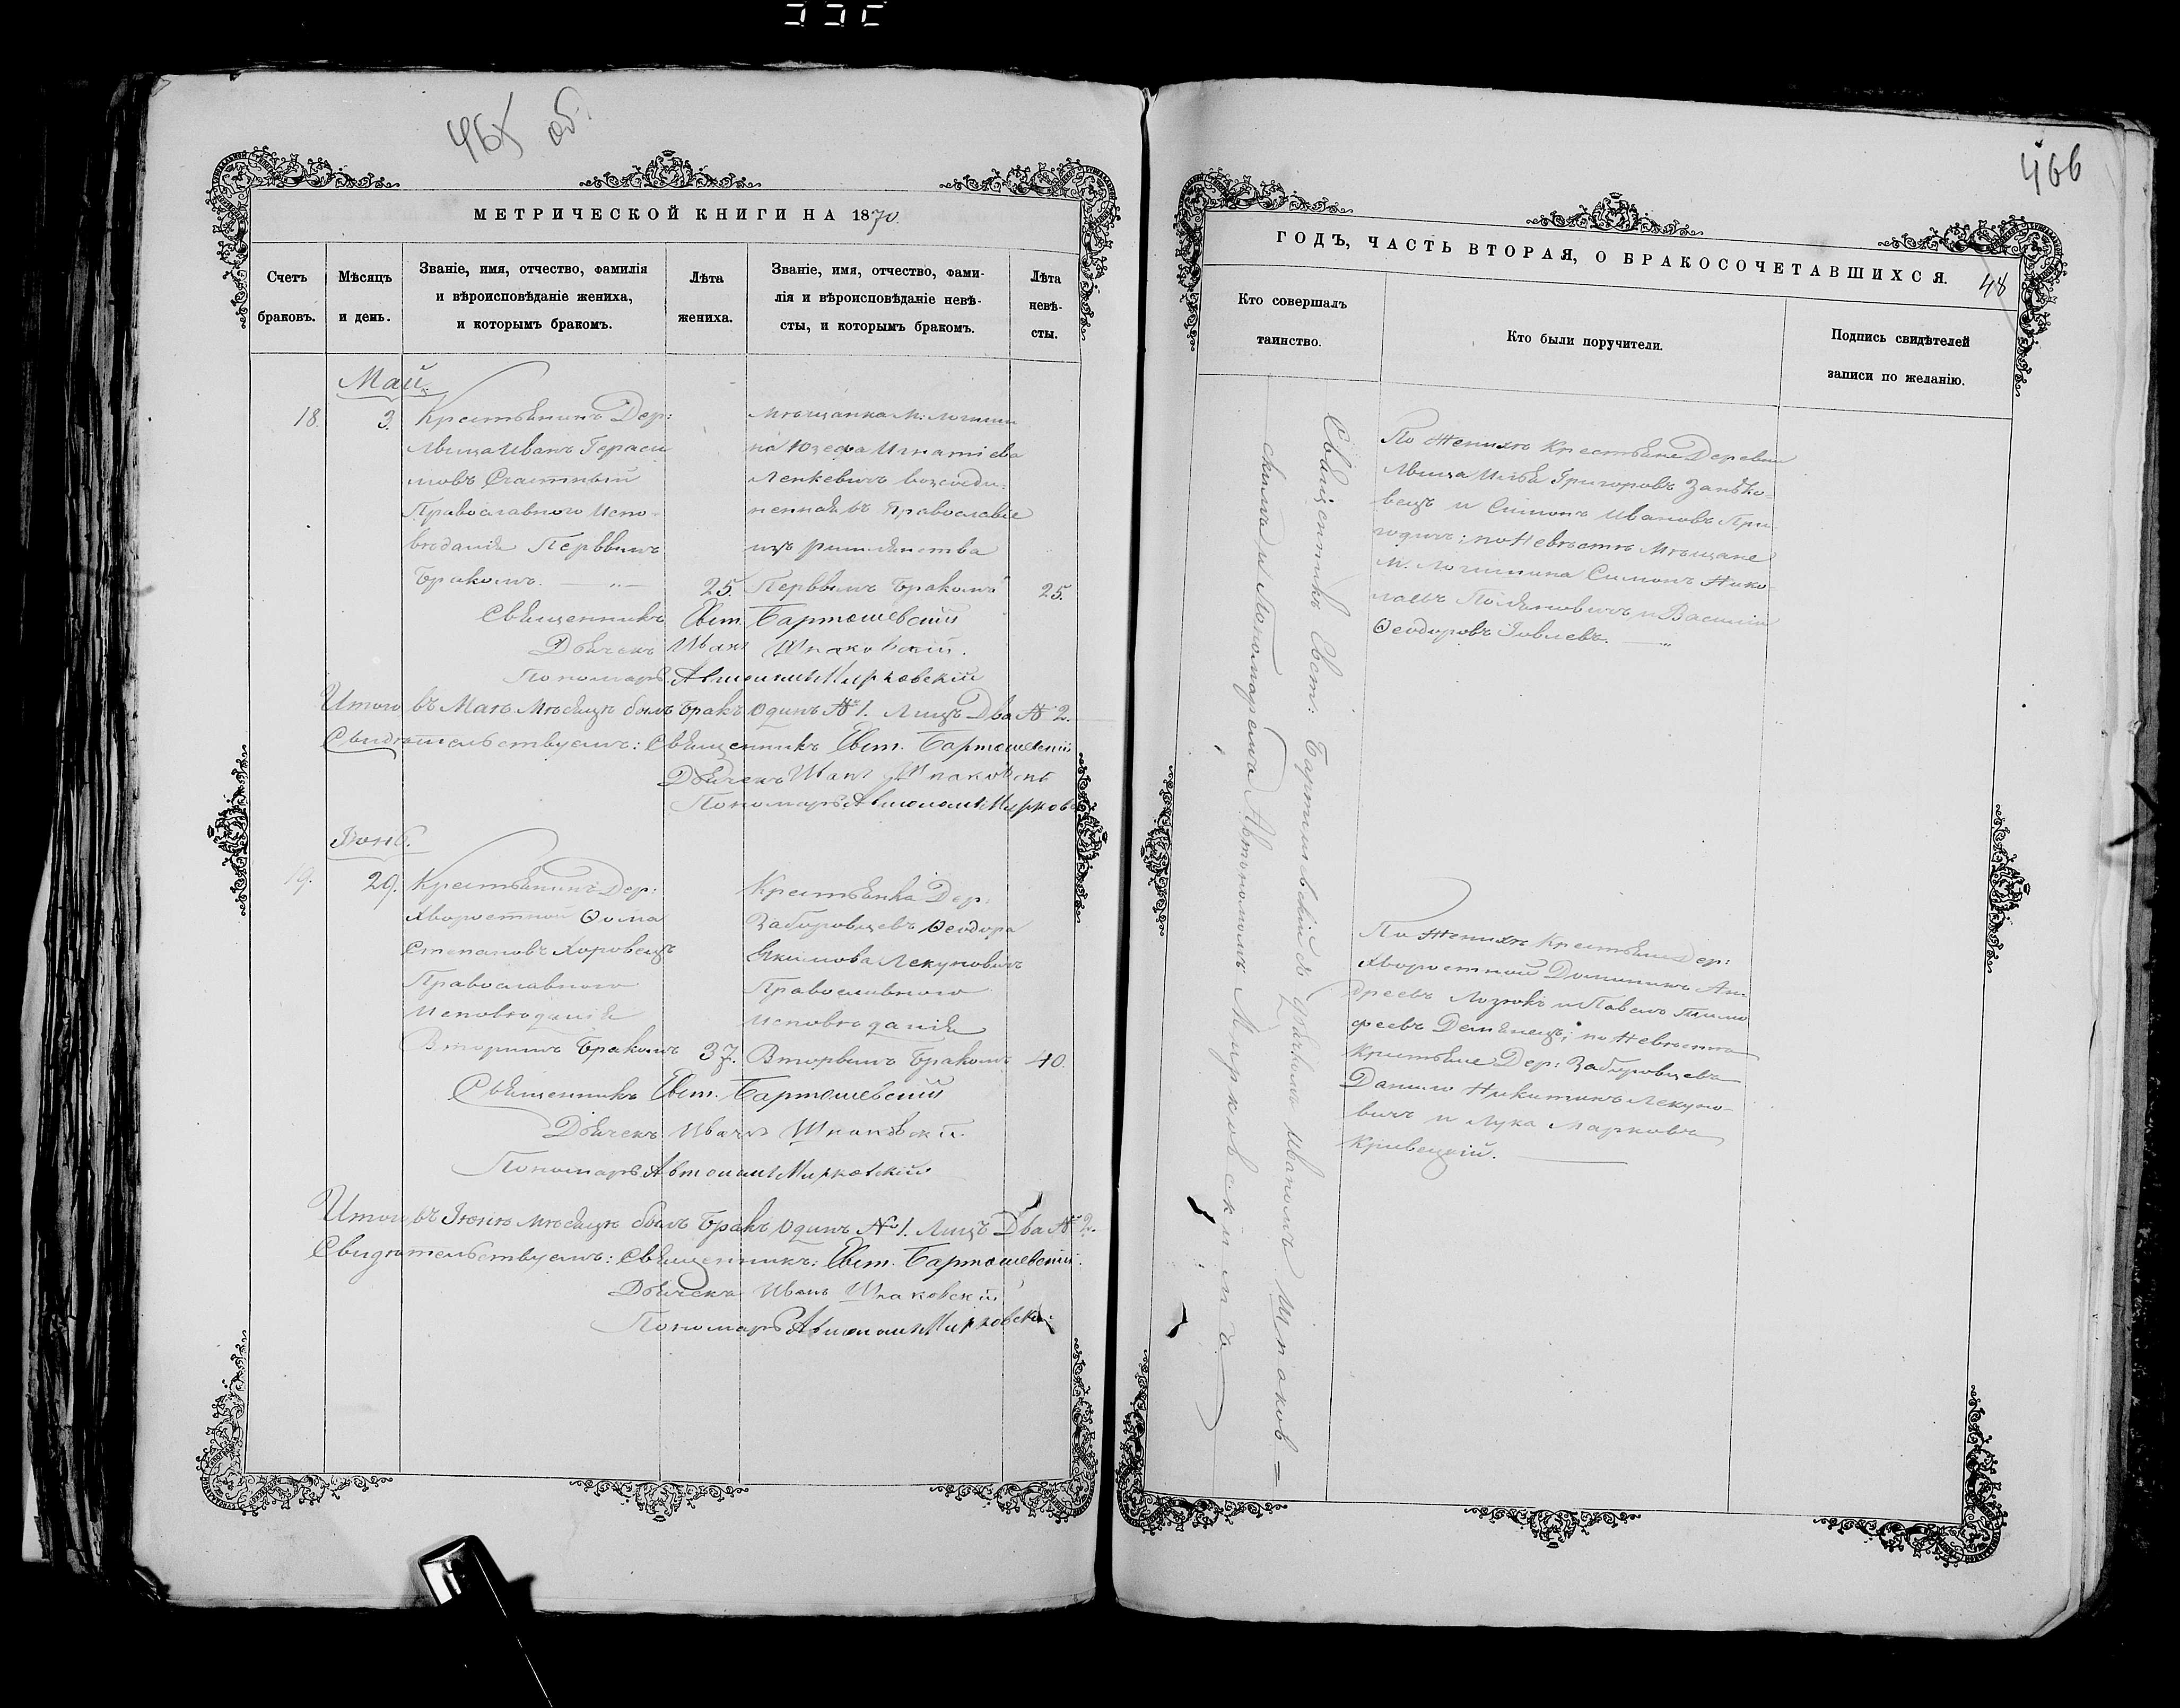 465 об.
МЕТРИЧЕСКОЙ КНИГИ НА 1870
Счетъ браковъ.
Мѣсяцъ и день.
Званіе, имя, отчество, фамилія
и вѣроисповѣданіе жениха,
и которымъ бракомъ.
Лѣта жениха.
Званіе, имя, отчество, фами-
лія и вѣроисповѣданіе невѣ-
сты, и которымъ бракомъ.
Лѣта
невѣ-
сты.
Май.
18.
3.
Крестьянинъ Дер:
Мвица Иванъ Гераси
мовъ Счастный
Православнаго Испо-
вѣданія Первымъ
Бракомъ.
25.
Мѣщанка М: Логиши
на Юзефа Игнатіева
Ленкевичъ возсоеди-
ненная въ Православіе
изъ римлянства
Первымъ Бракомъ
25.
Священникъ Евст. Бартошевскій
Дьячекъ Иванъ Шпаковскій.
Пономарь Автономъ Мирковскій
Итого въ Маѣ Мѣсяцѣ былъ Бракъ Одинъ № 1. Лицъ Два № 2.
Свидѣтельствуемъ: Священникъ Евст. Бартошевскій
Дьячекъ Иванъ Шпаковскій
Пономарь Автономъ Мирковс
Іюнь.
19.
29.
Крестьянинъ Дер:
Хворостной Ѳома
Степановъ Хоровецъ
Православнаго
Исповѣданія
Вторымъ Бракомъ
37.
Крестьянка Дер:
Заборовцевъ Ѳеодора
Якимова Лекуновичъ
Православнаго
Исповѣданія
Вторымъ Бракомъ
40.
Священникъ Евст. Бартошевскій
Дьячекъ Иванъ Шпаковскій
Пономарь Автономъ Мирковскій
Итого въ Іюнѣ мѣсяцѣ былъ Бракъ Одинъ № 1. Лицъ Два № 2.
Свидѣтельствуемъ: Священникъ: Евст. Бартошевскій.
Дьячекъ Иванъ Шпаковскій
Пономарь Автономъ Мирковскі:
466
ГОДЪ, ЧАСТЬ ВТОРАЯ, О БРАКОСОЧЕТАВШИХСЯ.
48
Кто совершалъ
таинство.
Кто были поручители.
Подпись свидѣтелей
записи по желанію.
Священникъ Евст: Бартошевскій съ Дьячкомъ Иваномъ Шпаков=
скимъ и Пономаремъ Автономомъ Мирковскимъ.
По Женихѣ Крестьяне Деревни
Мвица Илья Григоровъ Занько-
вецъ и Симонъ Ивановъ При-
годичъ; по Невѣстѣ Мѣщане
М. Логишина Симонъ Нико-
лаевъ Полдяновичъ и Василій
Ѳеодоровъ Іовлевъ.
По Женихѣ Крестьяне Дер:
Хворостной Доминикъ Ан-
дреевъ Лозюкъ и Павелъ Тимо
феевъ Демянецъ; по Невѣстѣ
Крестьяне Дер: Заборовцевъ
Данило Никитинъ Лекуно-
вичъ и Лука Марковъ
Кривецкій.